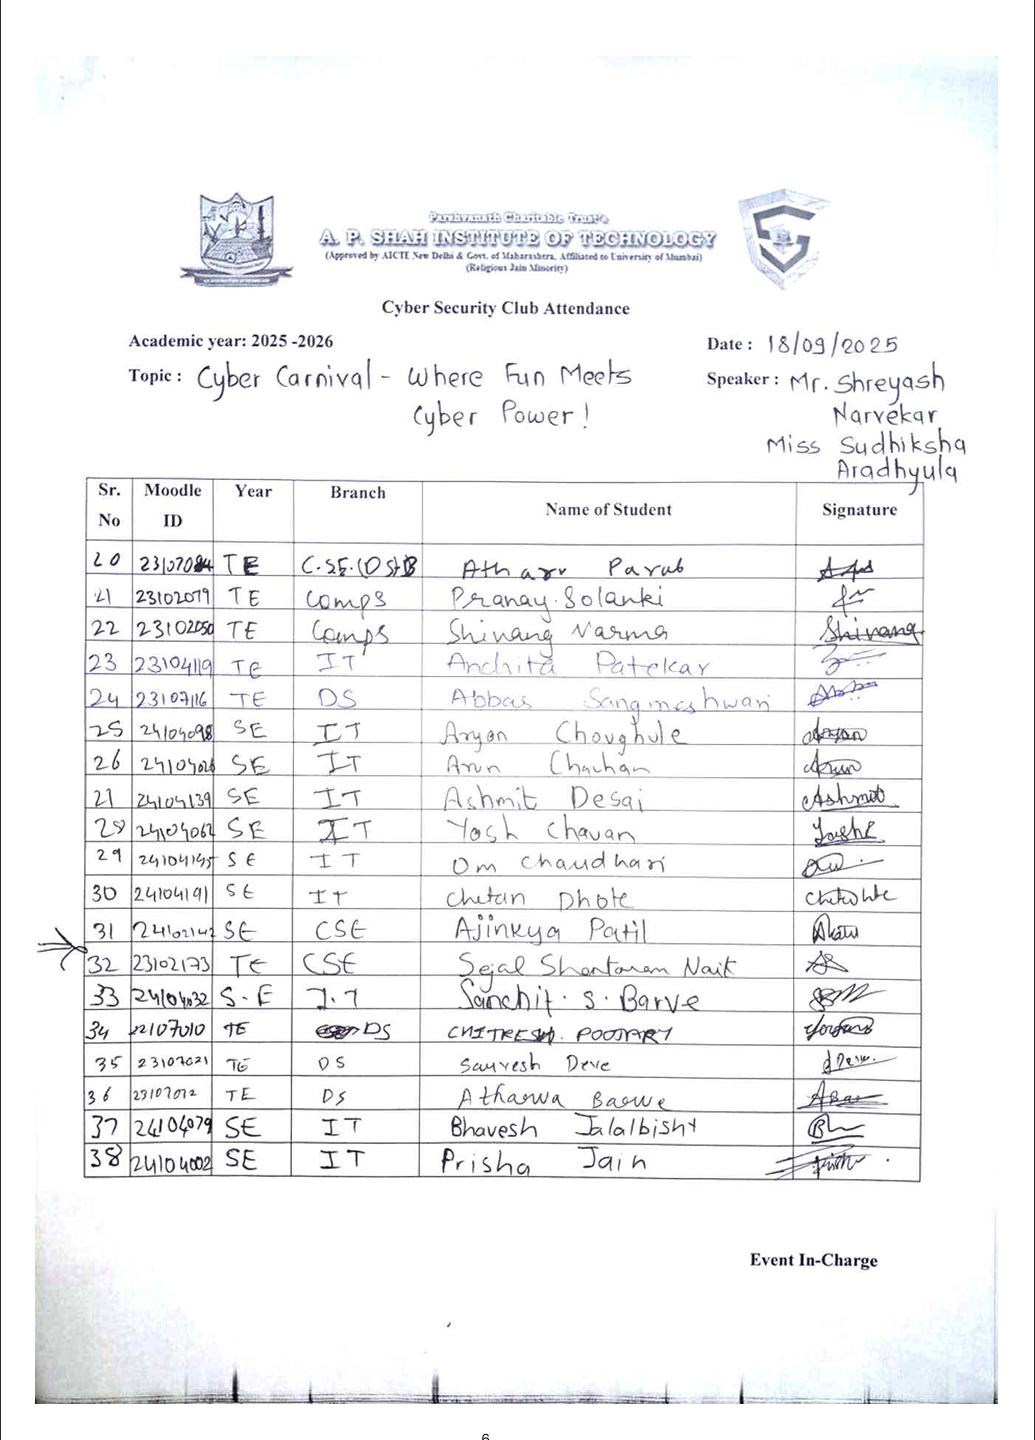 Parshvanath Charitable Trust's
A. P. SHAH INSTITUTE OF TECHNOLOGY
(Approved by AICTE New Delhi & Govt. of Maharashtra, Affiliated to University of Mumbai)
(Religious Jain Minority)
Cyber Security Club Attendance
Academic year: 2025 -2026 Date : 18/09/2025
Topic : Cyber Carnival - Where Fun Meets Cyber Power! Speaker : Mr. Shreyash
Narvekar
Miss Sudhiksha
Aradhyula
Sr. No Moodle ID Year Branch Name of Student Signature
20 TE Atharv Parab
21 23102079 TE Comps Pranay Solanki
22 23102050 TE Comps Shivang Varma Shivang
23 23104119 TE IT Anchita Patekar
24 23107116 TE DS Abbas Sangmeshwari
25 24104098 SE IT Aryan Choughule Aryan
26 SE IT Arun Chauhan Arun
27 24104139 SE IT Ashmit Desai Ashmit
28 24104062 SE IT Yash Chavan
29 24104145 SE IT Om Chaudhari
30 24104191 SE IT Chetan Dhote
31 SE CSE Ajinkya Patil
32 23102173 TE CSE Sejal Shantaram Naik
33 24104032 S.E I.T Sanchit. S. Barve
34 22107010 TE DS CHITRESH. POOJARY
35 23107021 TE DS Sarvesh Deve
36 TE DS Atharva Barwe
37 24104079 SE IT Bhavesh Jalalbisht
38 24104002 SE IT Prisha Jain
Event In-Charge
6